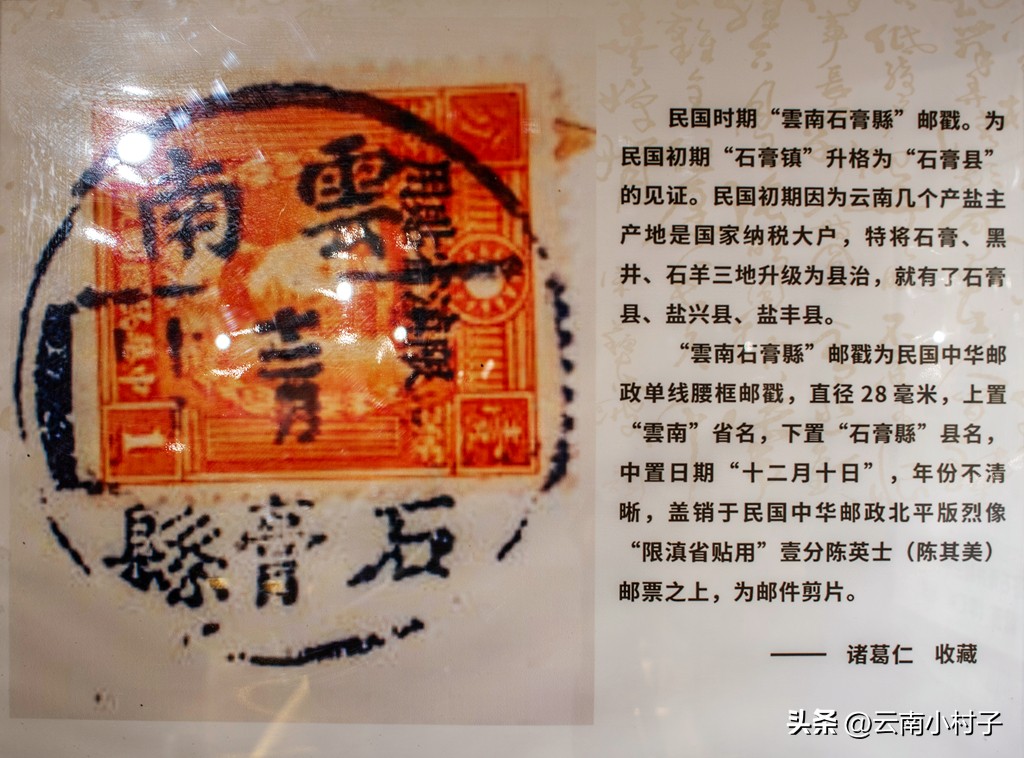 雲南
石膏縣
1
民国时期“雲南石膏縣”邮戳。为
民国初期“石膏镇”升格为“石膏县”
的见证。民国初期因为云南几个产盐主
产地是国家纳税大户，特将石膏、黑
井、石羊三地升级为县治，就有了石膏
县、盐兴县、盐丰县。
“雲南石膏縣”邮戳为民国中华邮
政单线腰框邮戳，直径 28 毫米，上置
“雲南”省名，下置“石膏縣”县名，
中置日期“十二月十日”，年份不清
晰，盖销于民国中华邮政北平版烈像
“限滇省贴用”壹分陈英士（陈其美）
邮票之上，为邮件剪片。
—— 诸葛仁 收藏
头条 @云南小村子